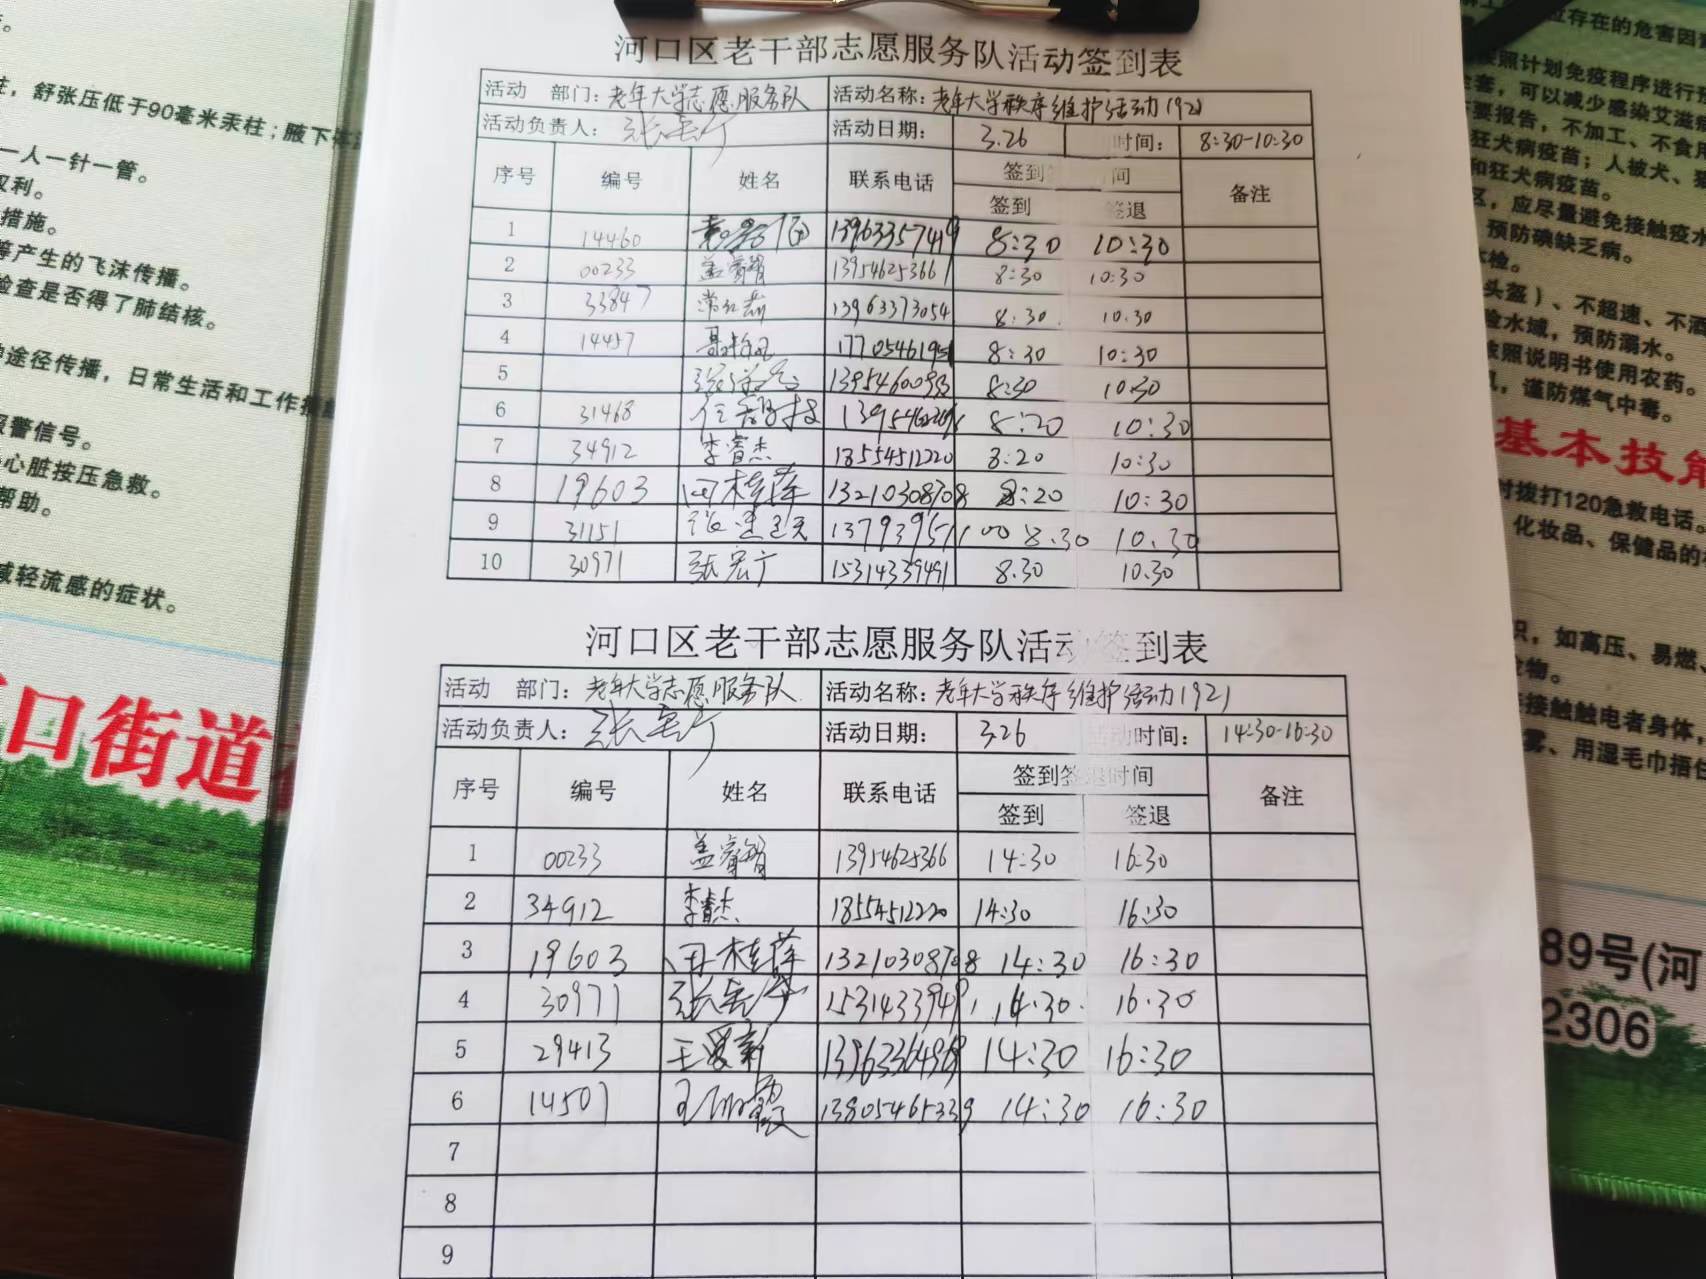 河口区老干部志愿服务队活动签到表
活动 部门：老年大学志愿服务队 活动名称：老年大学秩序维护活动1921
活动负责人： 活动日期： 3.26 时间： 8:30-10:30
序号 编号 姓名 联系电话 签到 间 备注
签到 签退
1 14460 13963357419 8:30 10:30
2 00233 盖睿智 13954625366 8:30 10:30
3 33847 13963373054 8:30 10:30
4 14457 17705461951 8:30 10:30
5 8:30 10:30
6 31468 8:20 10:30
7 34912 李睿杰 18554512220 8:20 10:30
8 19603 田桂萍 13210308708 8:20 10:30
9 31151 13793951100 8.30 10.30
10 30971 张宏宁 15314339491 8.30 10.30
河口区老干部志愿服务队活动签到表
活动 部门：老年大学志愿服务队 活动名称：老年大学秩序维护活动1921
活动负责人： 活动日期： 3.26 活动时间： 14:30-16:30
序号 编号 姓名 联系电话 签到签退时间 备注
签到 签退
1 00233 盖睿智 13954625366 14:30 16:30
2 34912 李睿杰 18554512220 14:30 16:30
3 19603 田桂萍 13210308708 14:30 16:30
4 30971 15314339491 14:30 16:30
5 29413 王爱新 13963364969 14:30 16:30
6 14507 13805465339 14:30 16:30
7
8
9
，舒张压低于90毫米汞柱；腋下
一人一针一管。
权利。
措施。
等产生的飞沫传播。
检查是否得了肺结核。
途径传播，日常生活和工作接
报警信号。
心脏按压急救。
帮助。
减轻流感的症状。
口街道
应存在的危害因
按照计划免疫程序进行预
套，可以减少感染艾滋病
要报告，不加工、不食用
狂犬病疫苗；人被犬、猫
和狂犬病疫苗。
区，应尽量避免接触疫水
预防碘缺乏病。
体检。
头盔）、不超速、不
险水域，预防溺水。
按照说明书使用农药。
，谨防煤气中毒。
基本技能
时拨打120急救电话。
、化妆品、保健品的
识，如高压、易燃、
物。
接触触电者身体，
雾、用湿毛巾捂住
89号(河
2306